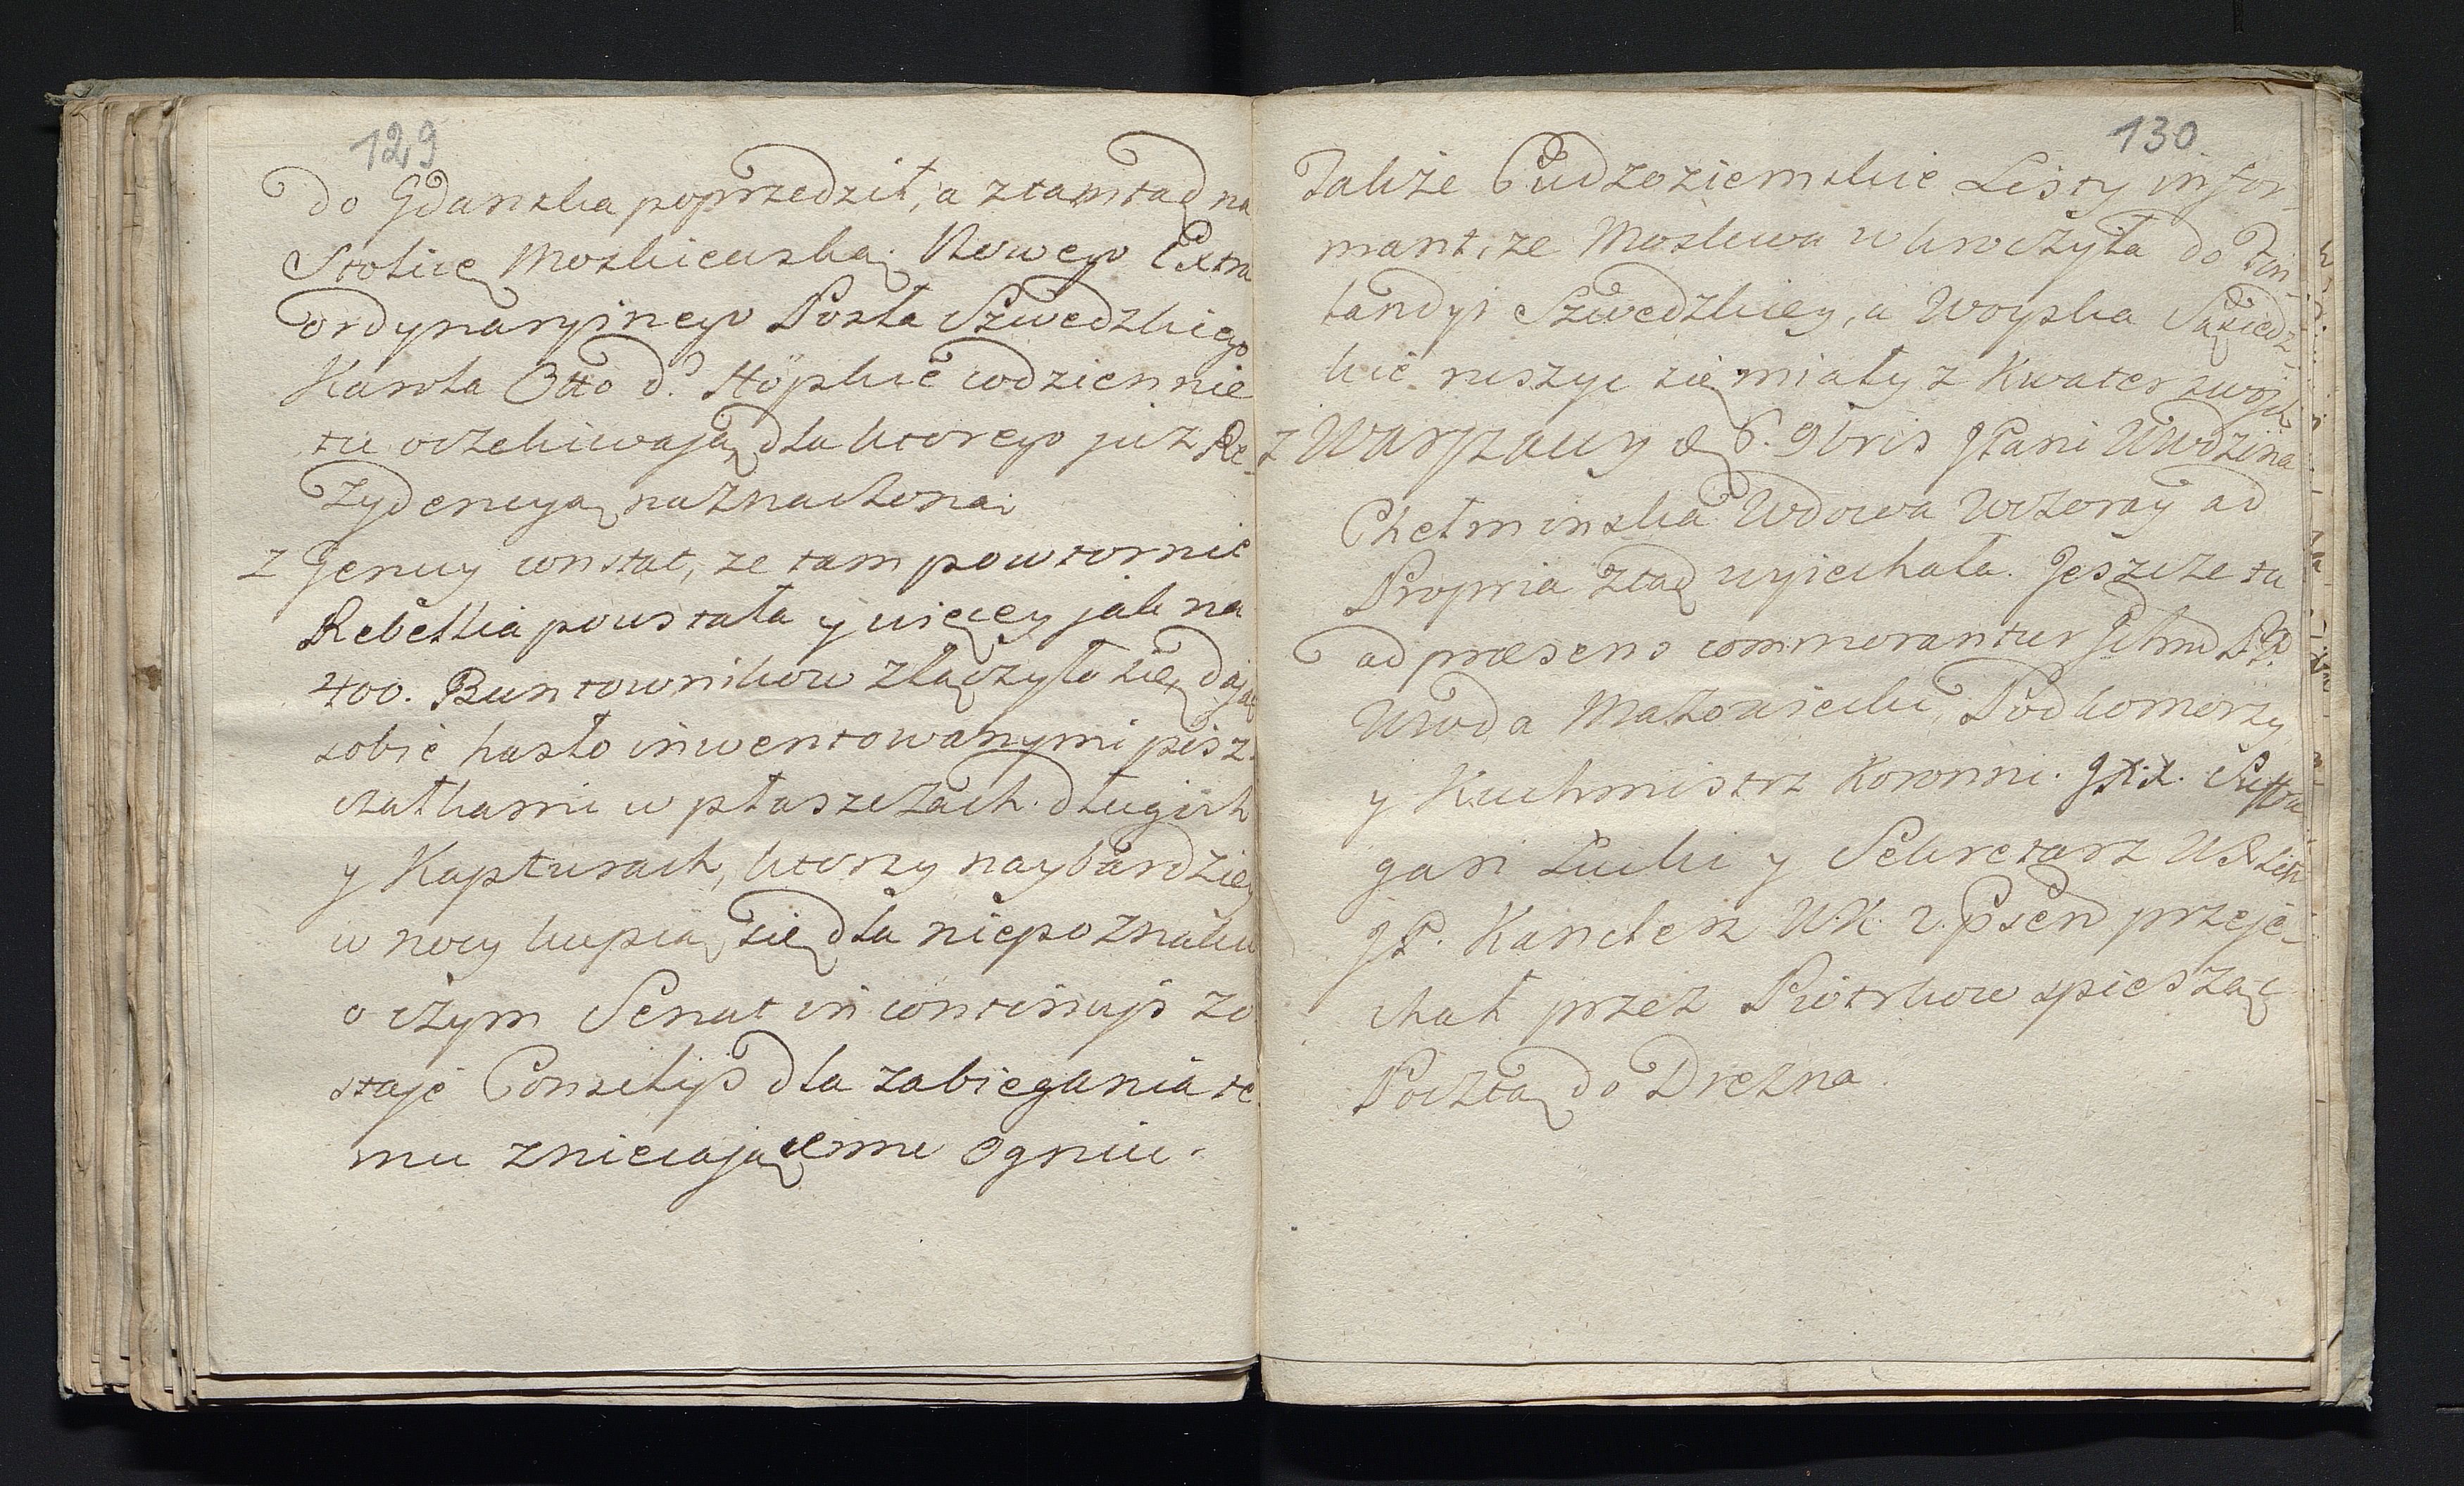 129
do Gdanska poprzedził, a ztamtąd na
Stolicę Moskiewską. Nowego Extra
ordynaryinego Posła Szwedzkiego
Karola Otto d. Höpkie codziennie
tu oczekiwają, dla ktorego już Re-
zydencya naznaczona.
z Genuy constat, ze tam powtornie
Rebellia powstała y więcey jak na
400. Buntownikow złączyło się, dając
sobie hasło inwentowanymi pisz
czałkami w płaszczach długich
y Kapturach, ktorzy naybardziey
w nocy kupią się dla niepoznaku
o czym Senat in continuis zo
staje Consilijs dla zabiegania te
mu zniecającemu ogniu.
130
Także Cudzoziemskie Listy infor
mant, ze Moskwa wkroczyła do Fin
landyi Szwedzkiey, a Woyska Szwedz
kie ruszyc się miały z Kwater swoich
z Warszawy d. 6. 9bris JPani Wwdzina
Chełminska Wdowa Wczoray ad
Propria ztąd wyiechała. Jeszcze tu
ad præsens commorantur Ichmć PP.
Wwda Mazowiecki, Podkomorzy
y Kuchmistrz Koronni. JXX. Suffra
gan Łucki y Sekretarz W. X Lith
JP. Kanclerz W.K. 2. Psen przeje-
chał przez Piotrkow spiesząc
Pocztą do Drezna.